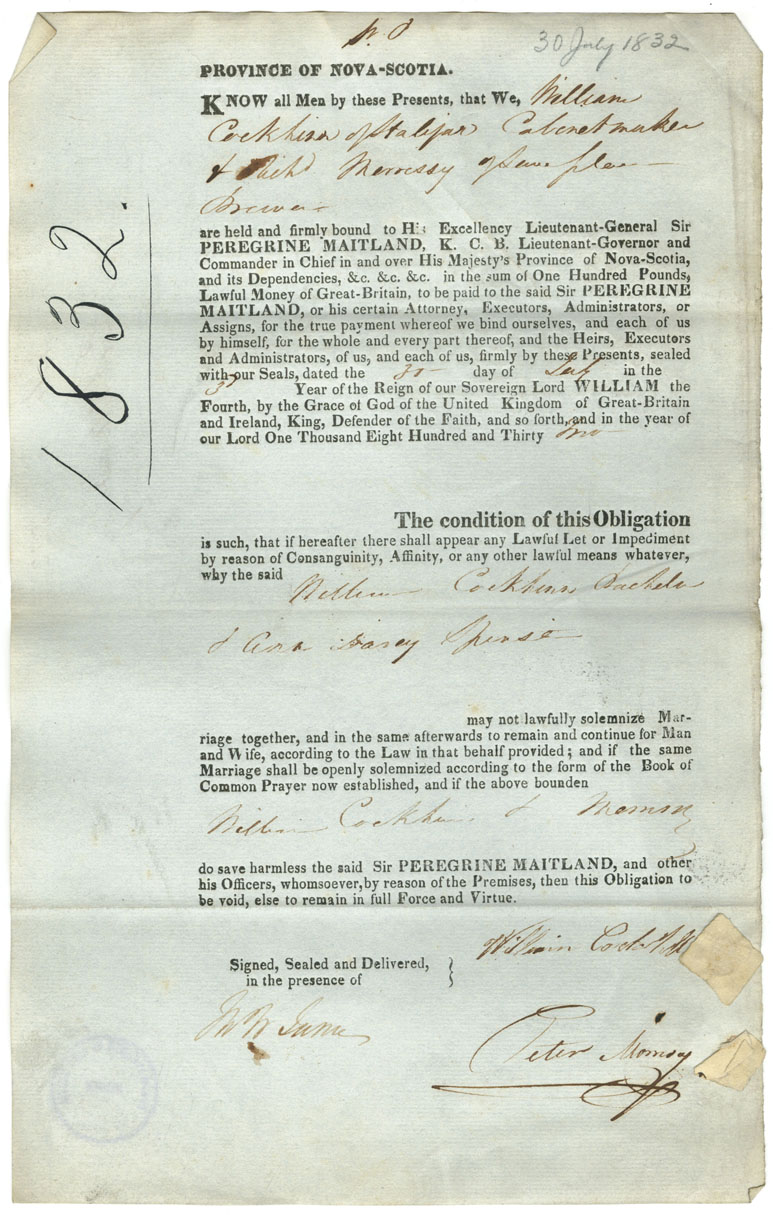 30 July 1832
PROVINCE OF NOVA-SCOTIA.
KNOW all Men by these Presents, that We, William
of Halifax Cabinet maker
& of same place
Brewer
are held and firmly bound to His Excellency Lieutenant-General Sir
PEREGRINE MAITLAND, K. C. B. Lieutenant-Governor and
Commander in Chief in and over His Majesty's Province of Nova-Scotia,
and its Dependencies, &c. &c. &c. in the sum of One Hundred Pounds,
Lawful Money of Great-Britain, to be paid to the said Sir PEREGRINE
MAITLAND, or his certain Attorney, Executors, Administrators, or
Assigns, for the true payment whereof we bind ourselves, and each of us
by himself, for the whole and every part thereof, and the Heirs, Executors
and Administrators, of us, and each of us, firmly by these Presents, sealed
with our Seals, dated the 30 day of July in the
3d Year of the Reign of our Sovereign Lord WILLIAM the
Fourth, by the Grace of God of the United Kingdom of Great-Britain
and Ireland, King, Defender of the Faith, and so forth, and in the year of
our Lord One Thousand Eight Hundred and Thirty two
1832.
The condition of this Obligation
is such, that if hereafter there shall appear any Lawful Let or Impediment
by reason of Consanguinity, Affinity, or any other lawful means whatever,
why the said
William Bachelor
& Ann Spinster
may not lawfully solemnize Mar-
riage together, and in the same afterwards to remain and continue for Man
and Wife, according to the Law in that behalf provided; and if the same
Marriage shall be openly solemnized according to the form of the Book of
Common Prayer now established, and if the above bounden
William &
do save harmless the said Sir PEREGRINE MAITLAND, and other
his Officers, whomsoever, by reason of the Premises, then this Obligation to
be void, else to remain in full Force and Virtue.
William
Signed, Sealed and Delivered,
in the presence of
Peter